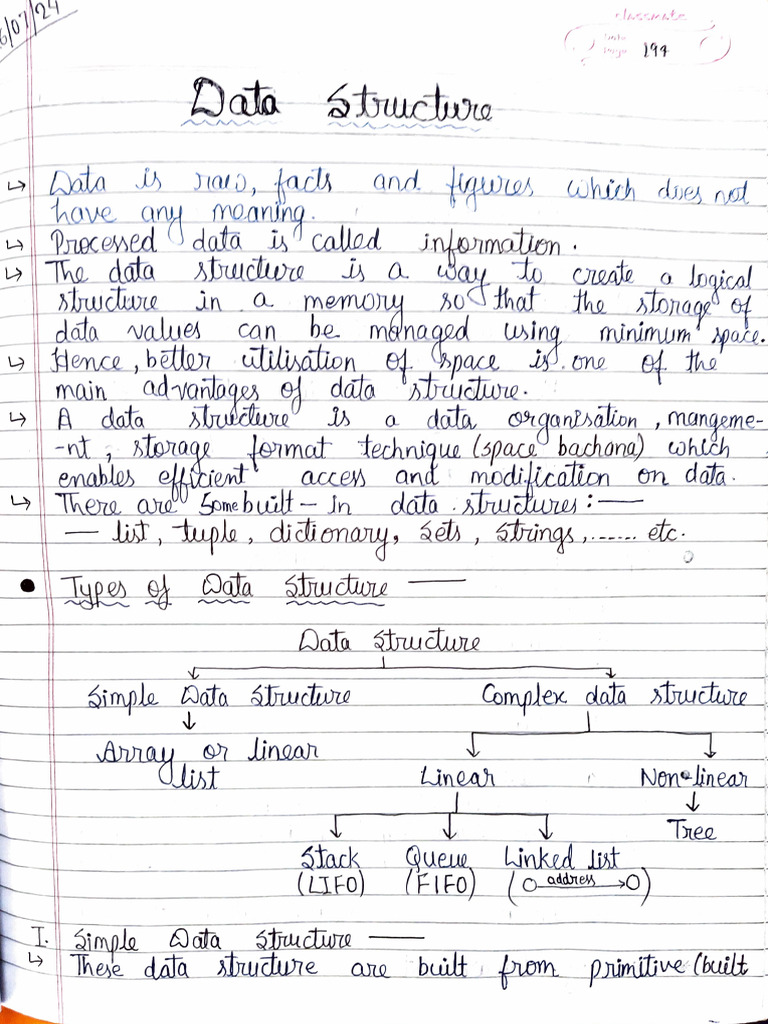 6/07/24
classmate
Date
Page 194
Data Structure
↳ Data is raw, facts and figures which does not
have any meaning.
↳ Processed data is called information.
↳ The data structure is a way to create a logical
structure in a memory so that the storage of
data values can be managed using minimum space.
↳ Hence, better utilisation of space is one of the
main advantages of data structure.
↳ A data structure is a data organisation, mangeme-
-nt, storage format technique (space bachana) which
enables efficient access and modification on data.
↳ There are some built-in data structures:—
— list, tuple, dictionary, sets, strings,...... etc.
● Types of Data Structure —
Data Structure
Simple Data Structure Complex data structure
Array or linear
list Linear Non-linear
Tree
Stack Queue Linked list
(LIFO) (FIFO) (O address → O)
I. Simple Data Structure —
↳ These data structure are built from primitive (built